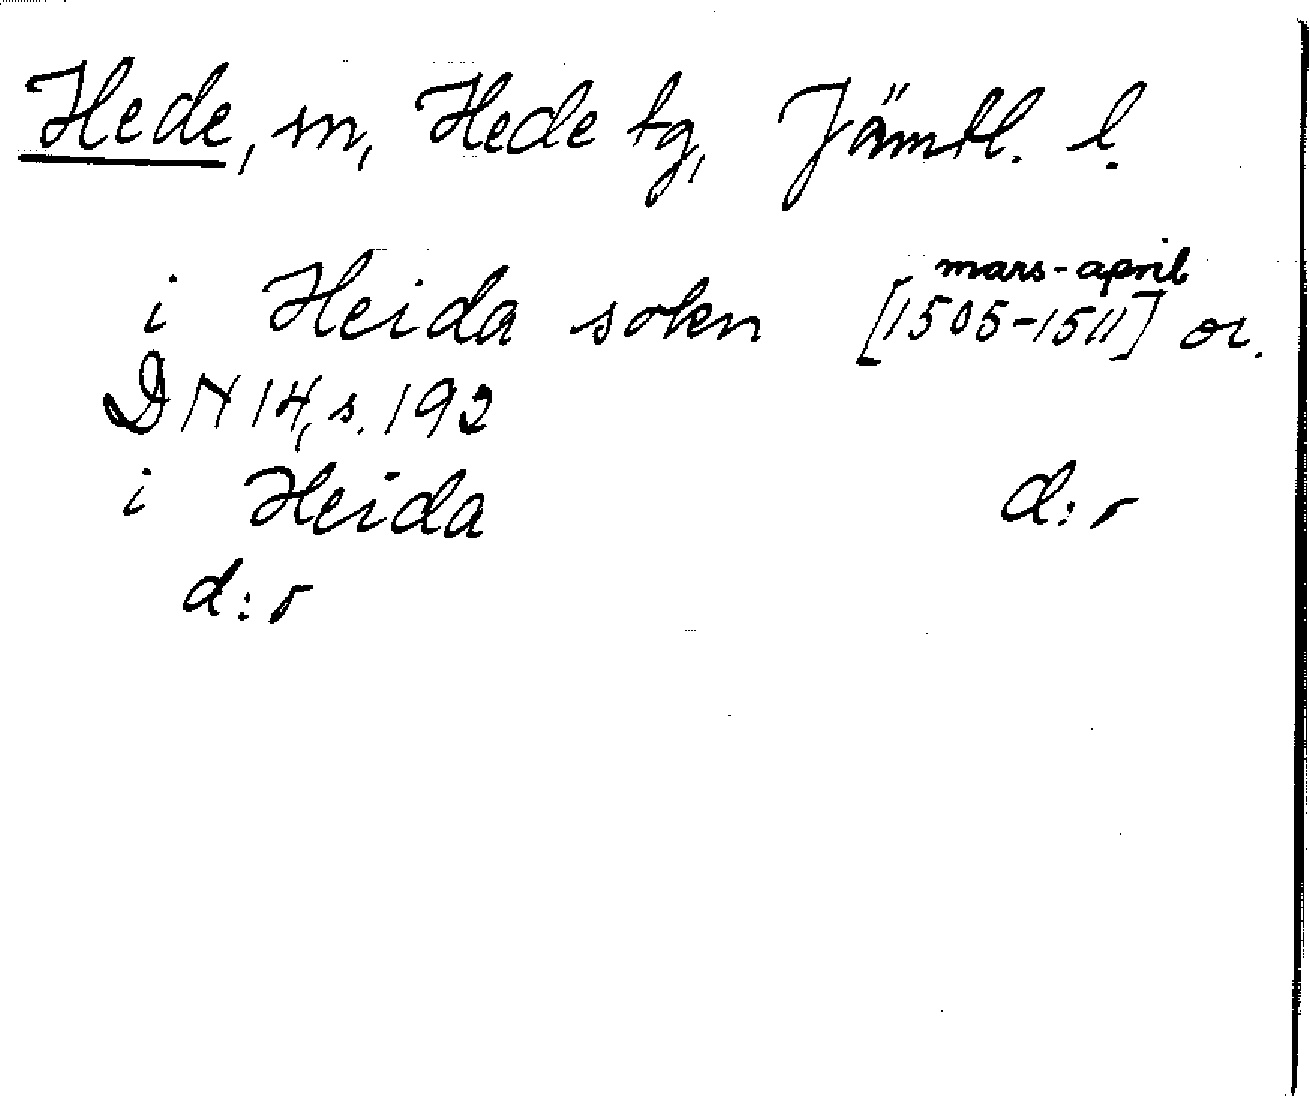 Hede, sn, Hede tg, Jämtl. l.
mars-april
i Heida sokn [1505-1511] or.
DN 14, s. 192
i Heida d:o
d:o